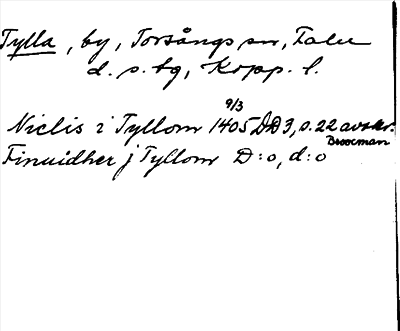 Tylla, by, Torsångs sn, Falu
d. s. tg, Kopp. l.
9/3
Niclis i Tyllom 1405 DD3, s. 22 avskr.
Broocman
Finuidher j Tyllom D:o, d:o